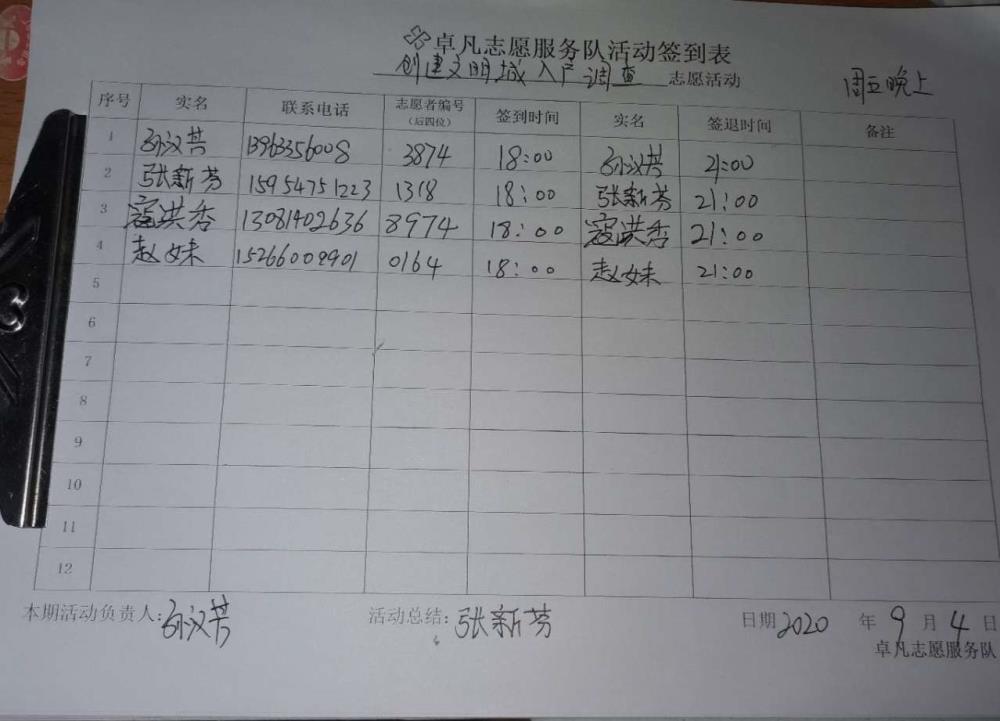 卓凡志愿服务队活动签到表
创建文明城入户调查 志愿活动 周五晚上
序号 实名 联系电话 志愿者编号（后四位） 签到时间 实名 签退时间 备注
1 孙汉芸 13963356008 3874 18:00 孙汉芸 21:00
2 张新芳 15954751223 1318 18:00 张新芳 21:00
3 寇洪秀 13081402636 8974 18:00 寇洪秀 21:00
4 赵妹 15266009901 0164 18:00 赵妹 21:00
5
6
7
8
9
10
11
12
本期活动负责人：孙汉芸 活动总结：张新芳 日期 2020 年 9 月 4 日
卓凡志愿服务队